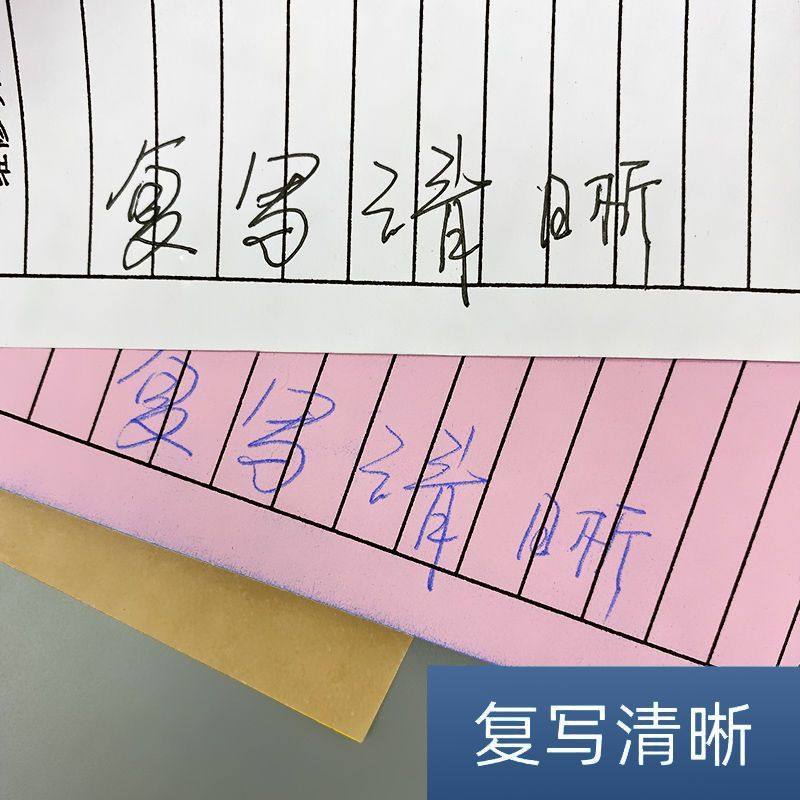 复写清晰
复写清晰
复写清晰